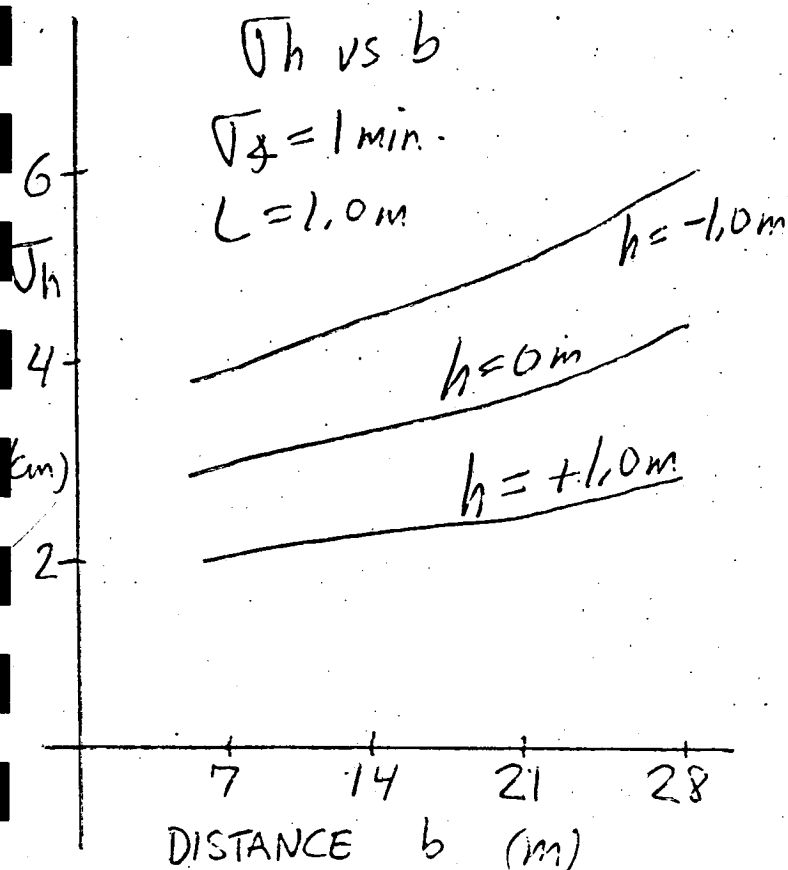 σh vs b
σ∡ = 1 min.
L = 1,0 m
6
σh
h = -1,0 m
4
h = 0 m
(cm)
h = +1,0 m
2
7 14 21 28
DISTANCE b (m)